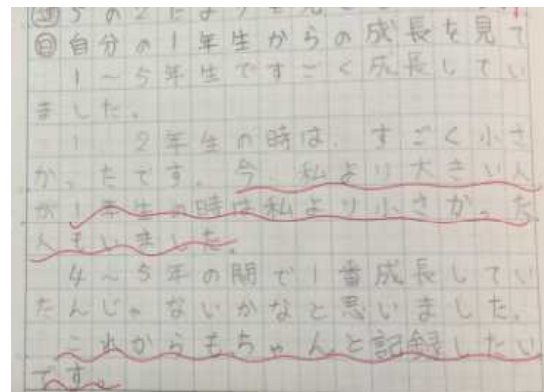 5の2
㊐自分の1年生からの成長を見て
1~5年生ですごく成長してい
ました。
1、2年生の時は、すごく小さ
かったです。今、私より大きい人
が1年生の時は私より小さかった
人もいました。
4~5年の間で1番成長してい
たんじゃないかなと思いました。
これからもちゃんと記録したい
です。